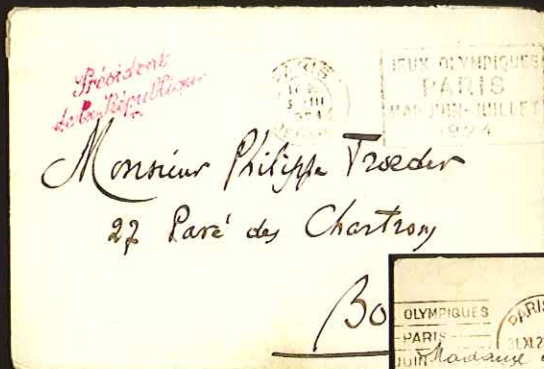 Président
de la République
PARIS
JEUX OLYMPIQUES
PARIS
MAI-JUIN-JUILLET
1924
Monsieur Philippe
27 Pavé des Chartrons
Bo
OLYMPIQUES
PARIS
JUIN
PARIS
Madame